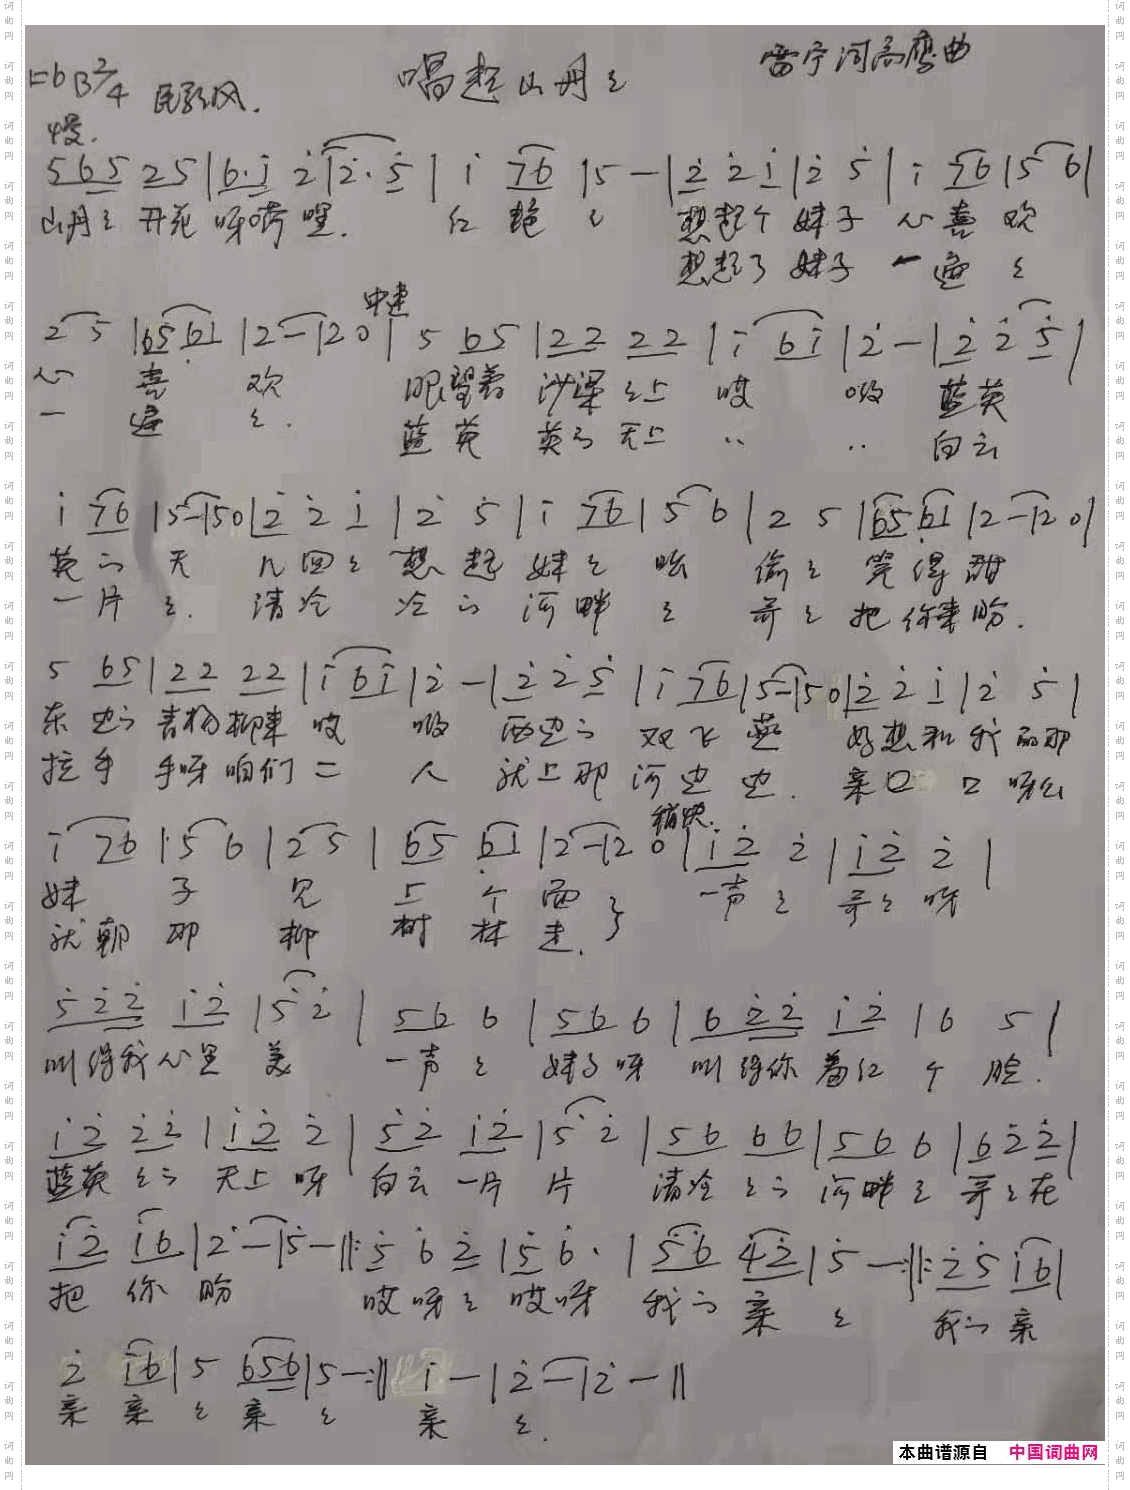 唱起山丹々
雷宁河高鹰曲
1=bB 2/4 民歌风.
慢.
5 6 5 2 5 | 6· 1 2 | 2· 5 | 1 7 6 | 5 - | 2 2 1 | 2 5 | 1 7 6 | 5 6 |
山丹々 开花 呀嗬嘿. 红 艳 々 想起个 妹子 心喜 欢
想起了 妹子 一 遍 々
2 5 | 6 5 6 1 | 2 - | 2 0 | 5 6 5 | 2 2 2 2 | 1 6 1 | 2 - | 2 2 5 |
中速
心 喜 欢 眼望着 沙梁々上 哎 哟 蓝英
一 遍 々. 蓝英 英的天上 ‥ ‥ 白云
1 7 6 | 5 - | 5 0 | 2 2 1 | 2 5 | 1 7 6 | 5 6 | 2 5 | 6 5 6 1 | 2 - | 2 0 |
英的 天 几回々 想起 妹々 哈 偷々 笑得甜
一片 々. 清冷 冷的 河畔 々 哥々 把你来盼.
5 6 5 | 2 2 2 2 | 1 6 1 | 2 - | 2 2 5 | 1 7 6 | 5 - | 5 0 | 2 2 1 | 2 5 |
东 边的 青杨柳来 哎 哟 西边的 双飞 燕 好想和我的那
拉手 手呀咱们 二 人 就上那 河边 边. 亲口 口呀么
1 7 6 | 5 6 | 2 5 | 6 5 6 1 | 2 - | 2 0 | 1 2 2 | 1 2 2 |
稍快.
妹 子 见 上 个 面 一声々 哥々呀
就朝 那 柳 树 林 走.
5 2 2 1 2 | 5 2 | 5 6 6 | 5 6 6 | 6 2 2 1 2 | 6 5 |
叫得我心里 美 一声々 妹子呀 叫得你羞红 个 脸.
1 2 2 2 | 1 2 2 | 5 2 1 2 | 5 2 | 5 6 6 6 | 5 6 6 | 6 2 2 |
蓝英々的 天上呀 白云一片 片 清冷々的 河畔々 哥々在
1 2 1 6 | 2 - | 5 - ‖: 5 6 2 | 5 6· | 5 6 4 2 | 5 - :‖: 2 5 1 6 |
把 你 盼 哎呀々 哎呀 我的 亲 々 我的 亲
2 1 6 | 5 6 5 6 | 5 - :‖ 1 - | 2 - | 2 - ‖
亲 亲 々 亲 々 亲 々.
本曲谱源自 中国词曲网